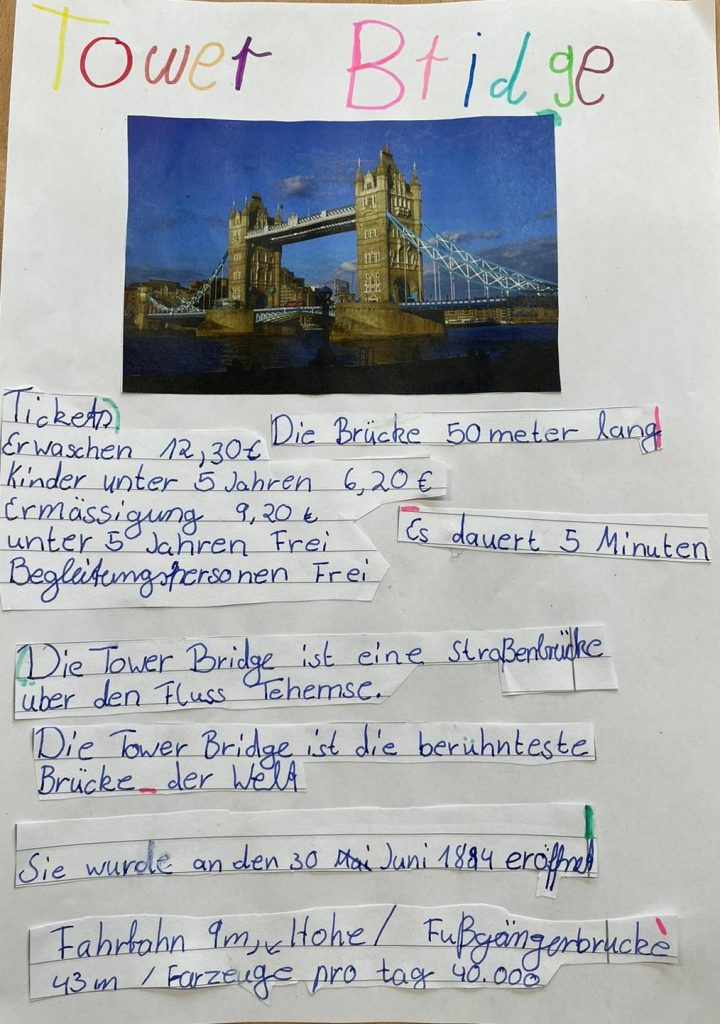 Tower Bridge
Tickets
Erwaschen 12,30€
Die Brücke 50 meter lang
Kinder unter 5 Jahren 6,20 €
Ermässigung 9,20 €
Es dauert 5 Minuten
unter 5 Jahren Frei
Begleitungspersonen Frei
Die Tower Bridge ist eine Straßenbrücke
über den Fluss Tehemse.
Die Tower Bridge ist die berühnteste
Brücke der Welt
Sie wurde an den 30 Juni 1894 eröffnet
Fahrbahn 9m, Hohe / Fußgängerbrucke
43m / Farzeuge pro tag 40.000